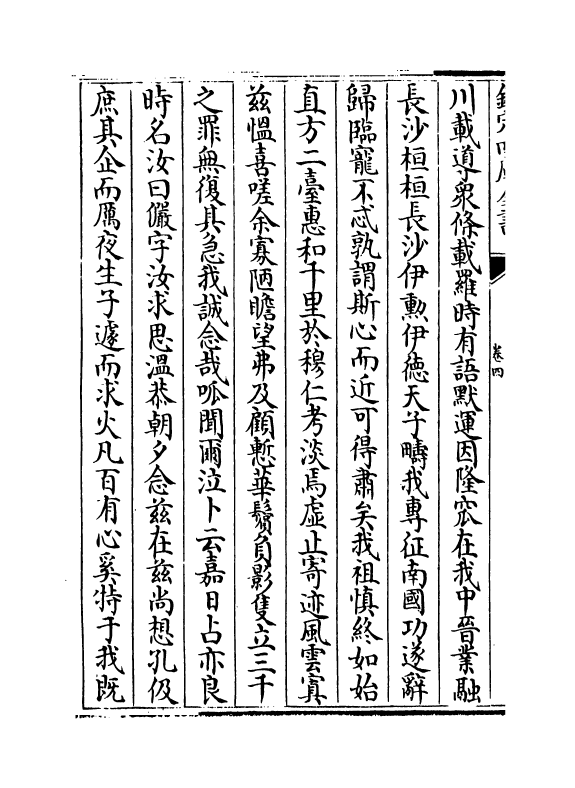 卷四
川載導衆條載羅時有語默運因隆窊在我中晉業融
長沙桓桓長沙伊勲伊徳天子疇我專征南國功遂辭
歸臨寵不忒孰謂斯心而近可得肅矣我祖慎終如始
直方二臺惠和千里於穆仁考淡焉虛止寄迹風雲寘
兹愠喜嗟余寡陋瞻望弗及顧慙華鬢負影隻立三千
之罪無復其急我誠念哉呱聞爾泣卜云嘉日占亦良
時名汝曰儼字汝求思溫恭朝夕念兹在兹尚想孔伋
庶其企而厲夜生子遽而求火凡百有心奚特于我既